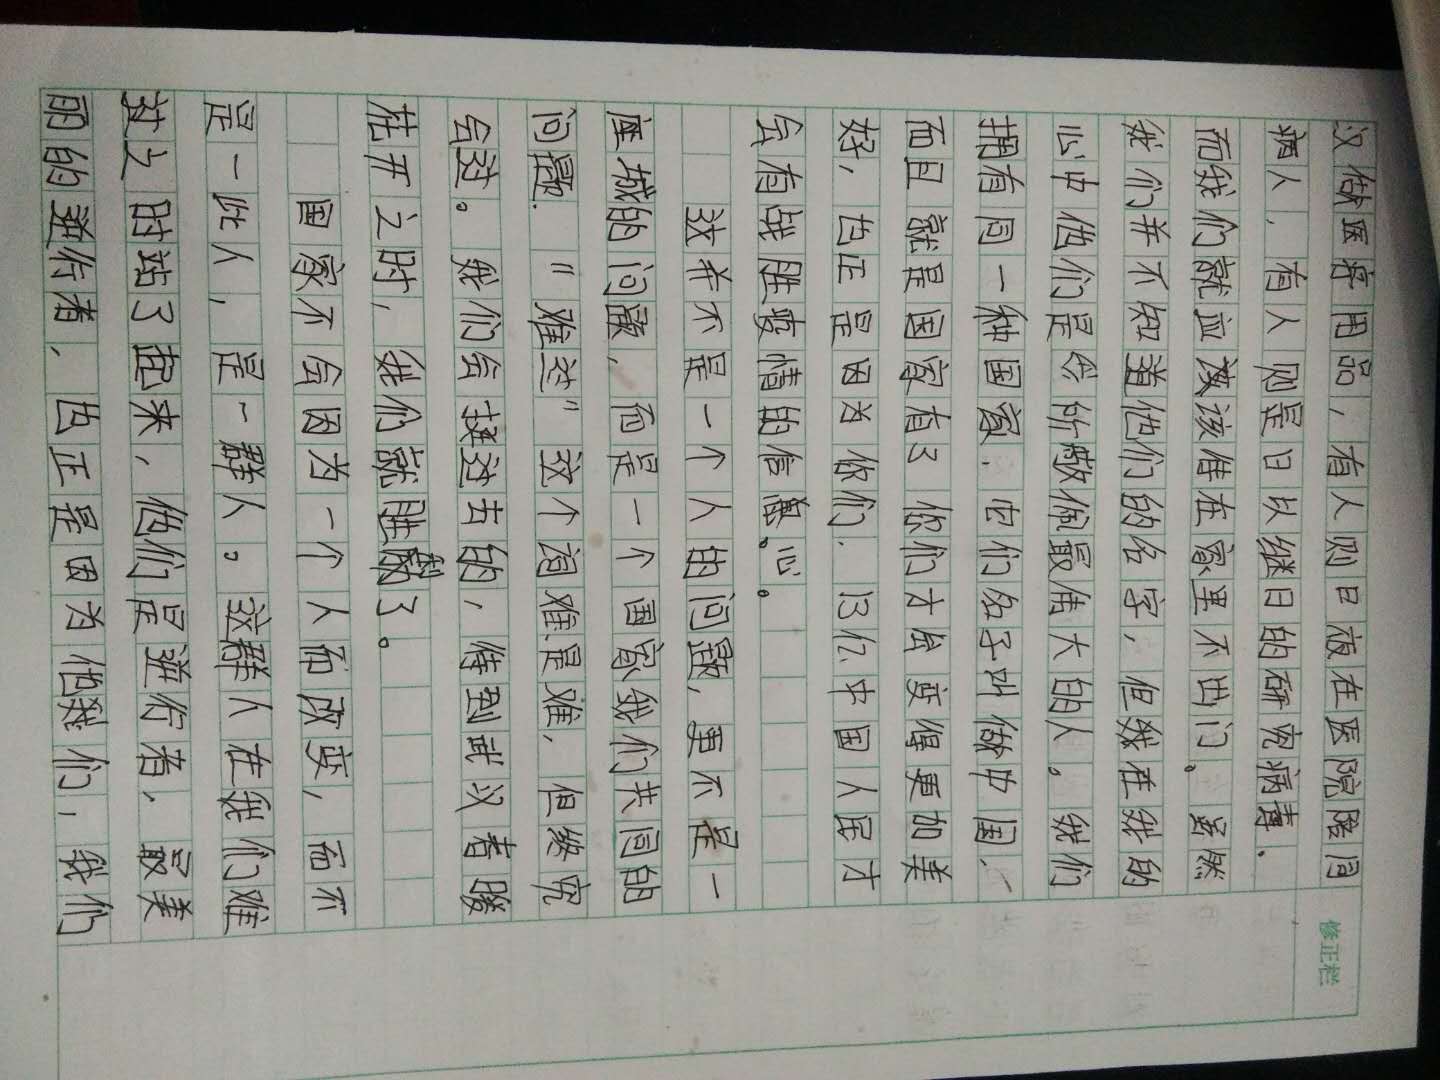 汉做医疗用品，有人则日夜在医院陪同
病人，有人则是日以继日的研究病毒。
而我们就应该待在家里不出门。虽然
我们并不知道他们的名字，但我在我的
心中他们是令所敬佩最伟大的人。我们
拥有同一种国家，它们名子叫做中国、
而且就是国家有了你们才会变得更加美
好，也正是因为你们，13亿中国人民才
会有战胜疫情的信心。
这并不是一个人的问题，更不是一
座城的问题，而是一个国家我们共同的
问题。"难过"这个词难是难，但终究
会过。我们会挺过去的，待到武汉春暖
花开之时，我们就胜利了。
国家不会因为一个人而改变，而不
是一些人，是一群人。这群人在我们难
过之时站了起来，他们是逆行者，最美
丽的逆行者、也正是因为他我们，我们
修正栏